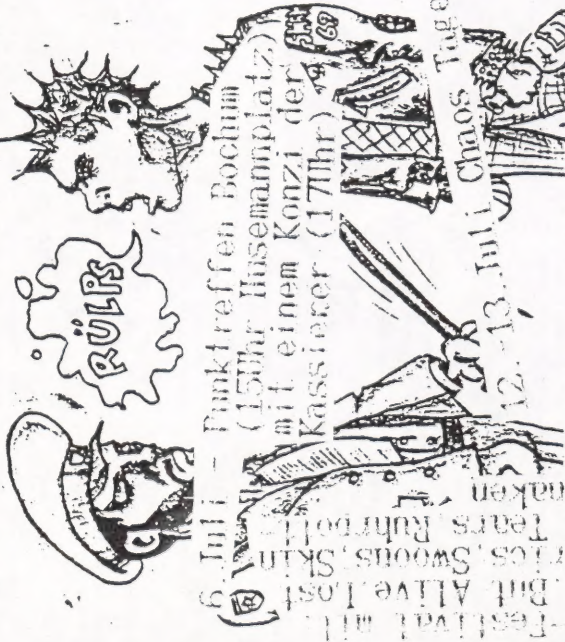 RÜLPS
Juli - Punktreffen Bochum
(15Uhr Husemannplatz)
mit einem Konzi der
Kassierer (17Uhr)
69
12.-13.Juli Chaos Tage
Festival mit
But Alive, Lost
rics, Swoons, Skin
Tears, Ruhrpott
naken